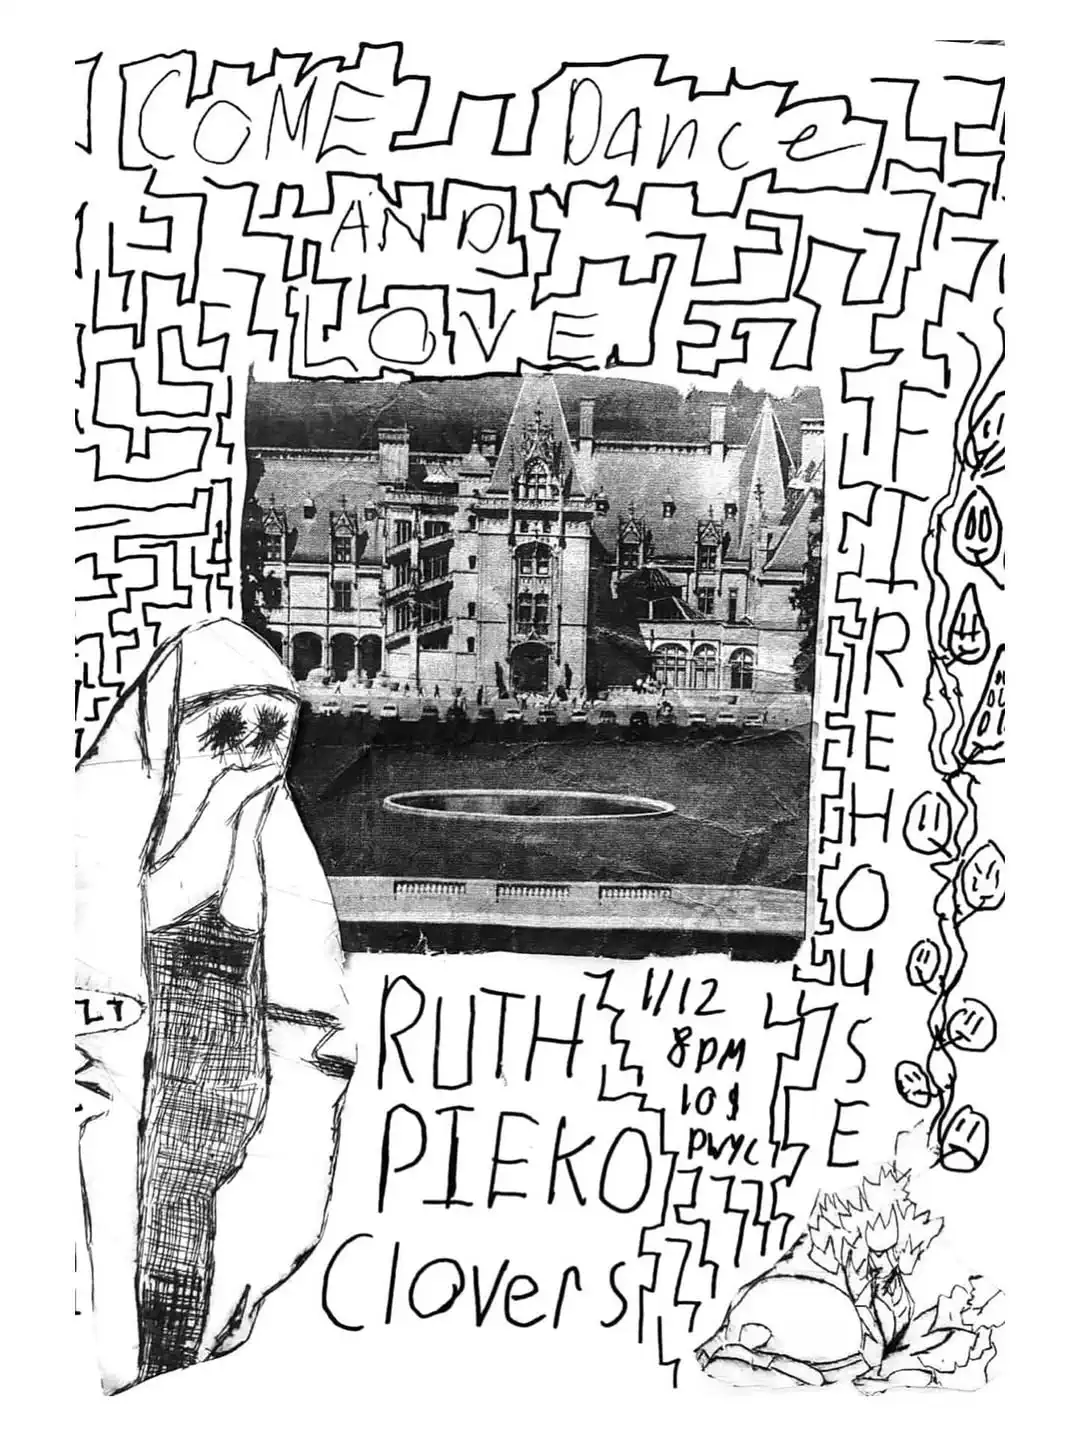 COME Dance
AND
LOVE
FIREHOUSE
RUTH
PIEKO
Clovers
1/12
8pm
10$
PWYC
LY